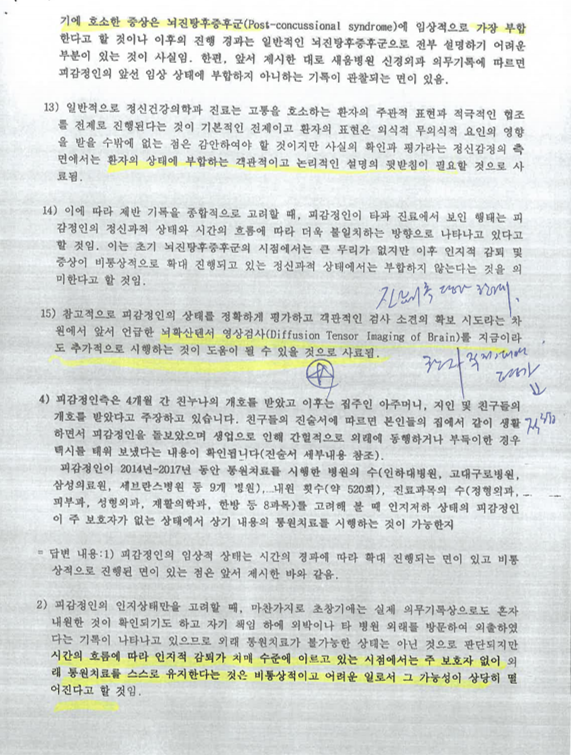 기에 호소한 증상은 뇌진탕후증후군(Post-concussional syndrome)에 임상적으로 가장 부합
한다고 할 것이나 이후의 진행 경과는 일반적인 뇌진탕후증후군으로 전부 설명하기 어려운
부분이 있는 것이 사실임. 한편, 앞서 제시한 대로 새움병원 신경외과 의무기록에 따르면
피감정인의 앞선 임상 상태에 부합하지 아니하는 기록이 관찰되는 면이 있음.
13) 일반적으로 정신건강의학과 진료는 고통을 호소하는 환자의 주관적 표현과 적극적인 협조
를 전제로 진행된다는 것이 기본적인 전제이고 환자의 표현은 의식적 무의식적 요인의 영향
을 받을 수밖에 없는 점은 감안하여야 할 것이지만 사실의 확인과 평가라는 정신감정의 측
면에서는 환자의 상태에 부합하는 객관적이고 논리적인 설명의 뒷받침이 필요할 것으로 사
료됨.
14) 이에 따라 제반 기록을 종합적으로 고려할 때, 피감정인이 타과 진료에서 보인 행태는 피
감정인의 정신과적 상태와 시간의 흐름에 따라 더욱 불일치하는 방향으로 나타나고 있다고
할 것임. 이는 초기 뇌진탕후증후군의 시점에서는 큰 무리가 없지만 이후 인지적 감퇴 및
증상이 비통상적으로 확대 진행되고 있는 정신과적 상태에서는 부합하지 않는다는 것을 의
미한다고 할 것임.
15) 참고적으로 피감정인의 상태를 정확하게 평가하고 객관적인 검사 소견의 확보 시도라는 차
원에서 앞서 언급한 뇌확산텐서 영상검사(Diffusion Tensor Imaging of Brain)를 지금이라
도 추가적으로 시행하는 것이 도움이 될 수 있을 것으로 사료됨.
4) 피감정인측은 4개월 간 친누나의 개호를 받았고 이후는 집주인 아주머니, 지인 및 친구들의
개호를 받았다고 주장하고 있습니다. 친구들의 진술서에 따르면 본인들의 집에서 같이 생활
하면서 피감정인을 돌보았으며 생업으로 인해 간헐적으로 외래에 동행하거나 부득이한 경우
택시를 태워 보냈다는 내용이 확인됩니다(진술서 세부내용 참조).
피감정인이 2014년~2017년 동안 통원치료를 시행한 병원의 수(인하대병원, 고대구로병원,
삼성의료원, 세브란스병원 등 9개 병원), 내원 횟수(약 520회), 진료과목의 수(정형외과,
피부과, 성형외과, 재활의학과, 한방 등 8과목)를 고려해 볼 때 인지저하 상태의 피감정인
이 주 보호자가 없는 상태에서 상기 내용의 통원치료를 시행하는 것이 가능한지
= 답변 내용:1) 피감정인의 임상적 상태는 시간의 경과에 따라 확대 진행되는 면이 있고 비통
상적으로 진행된 면이 있는 점은 앞서 제시한 바와 같음.
2) 피감정인의 인지상태만을 고려할 때, 마찬가지로 초창기에는 실제 의무기록상으로도 혼자
내원한 것이 확인되기도 하고 자기 책임 하에 외박이나 타 병원 외래를 방문하여 외출하였
다는 기록이 나타나고 있으므로 외래 통원치료가 불가능한 상태는 아닌 것으로 판단되지만
시간의 흐름에 따라 인지적 감퇴가 치매 수준에 이르고 있는 시점에서는 주 보호자 없이 외
래 통원치료를 스스로 유지한다는 것은 비통상적이고 어려운 일로서 그 가능성이 상당히 떨
어진다고 할 것임.